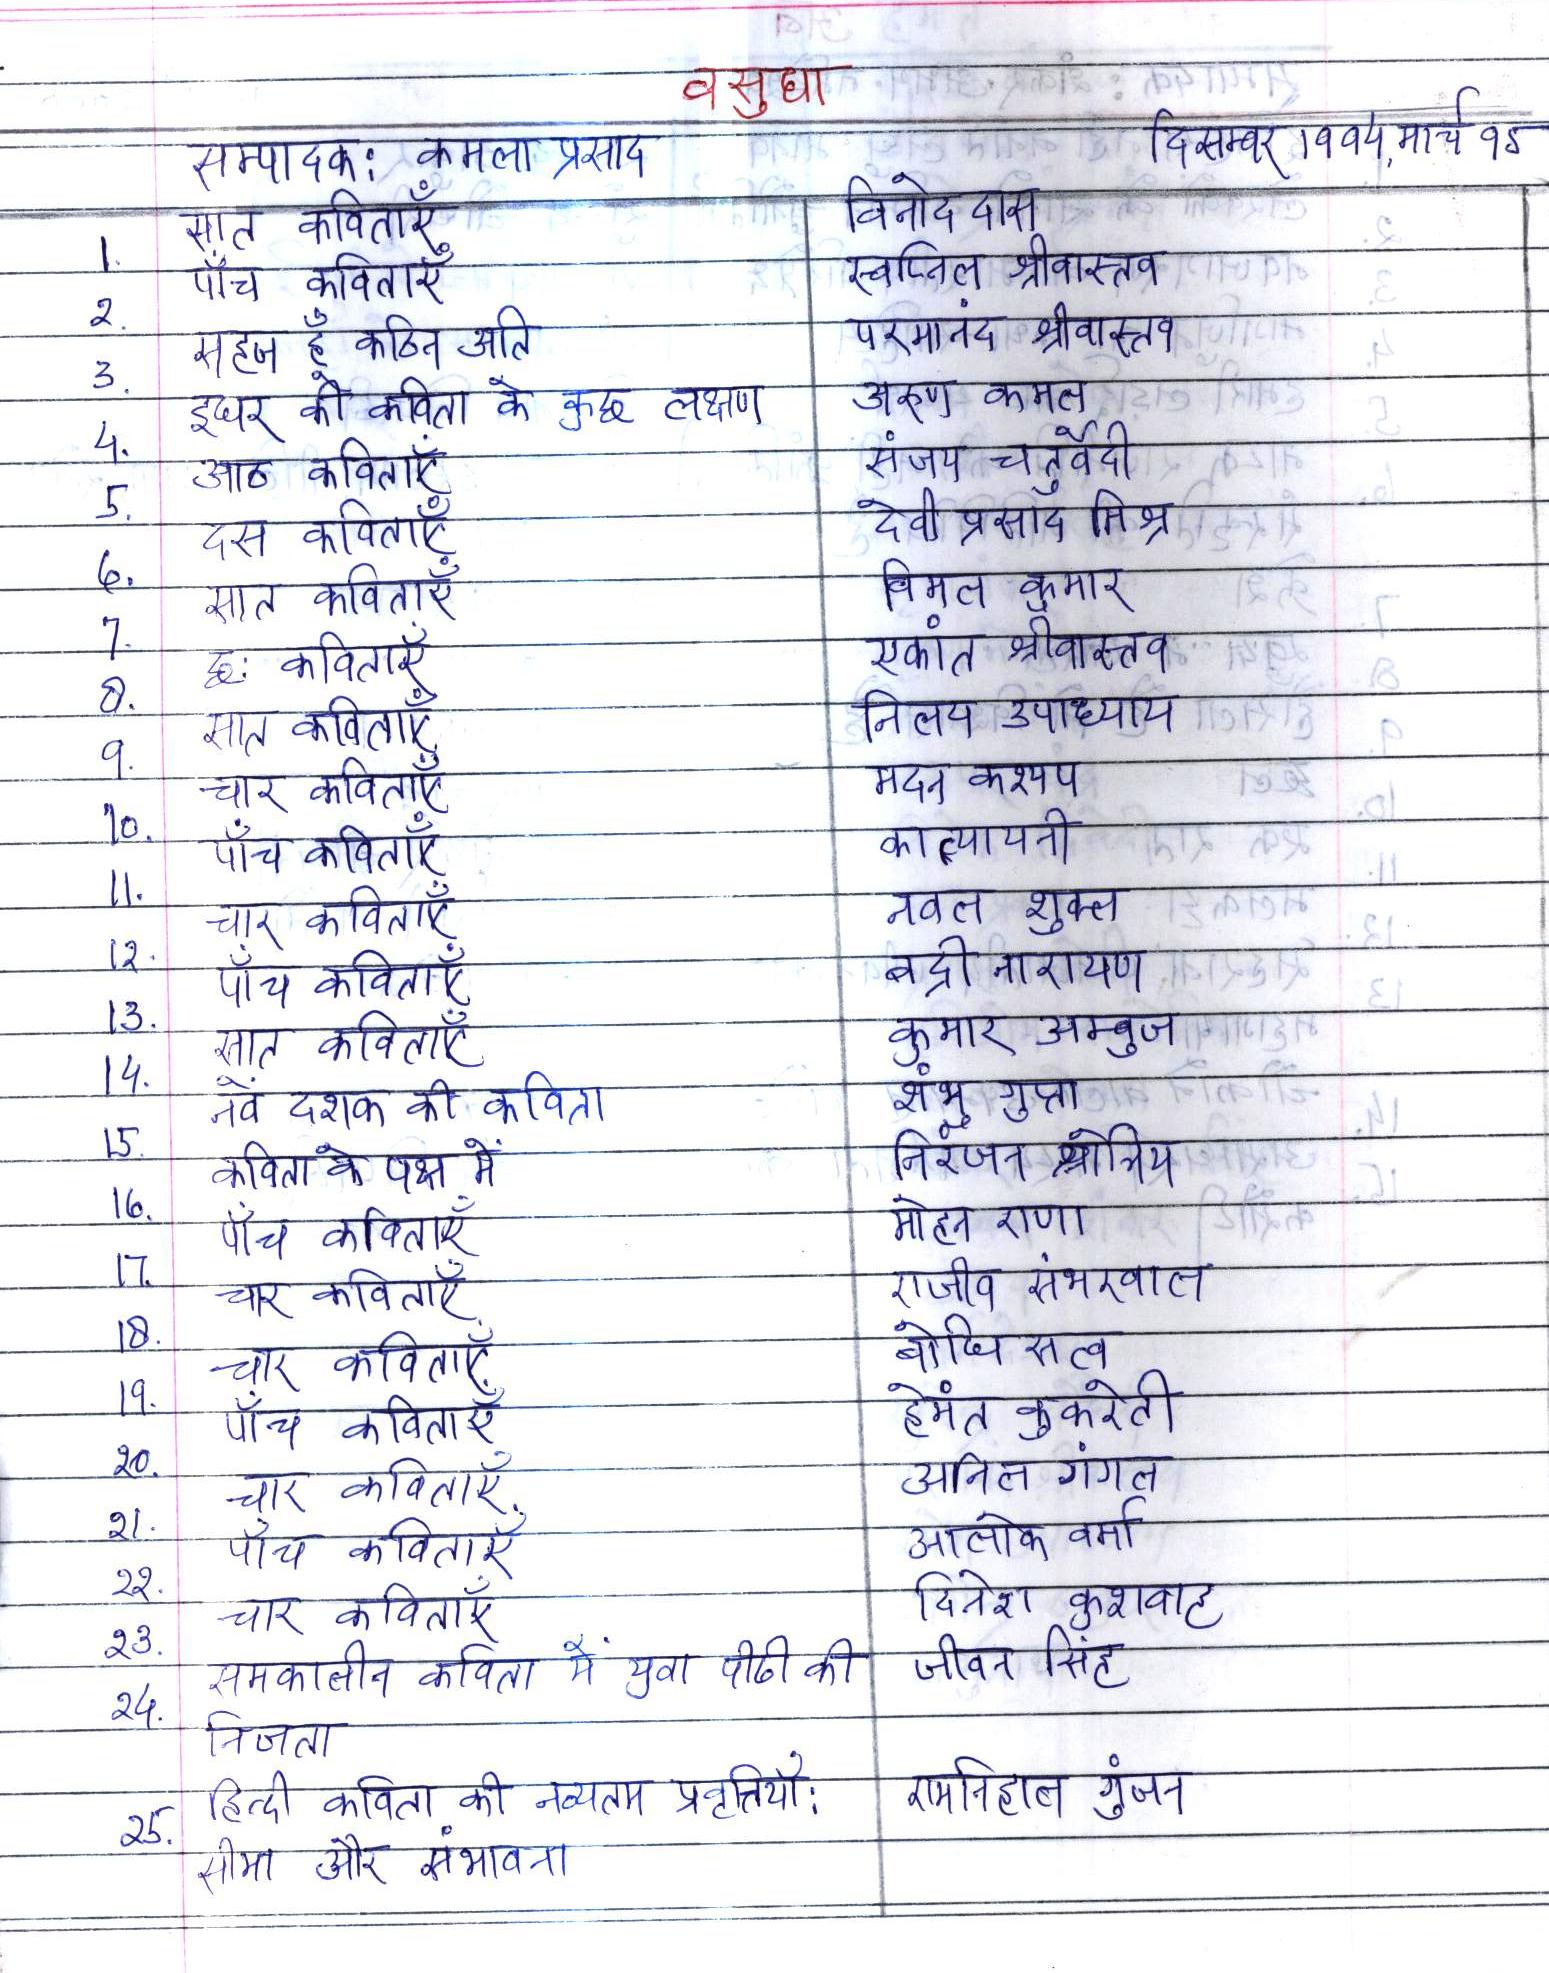 वसुधा
सम्पादक: कमला प्रसाद दिसम्बर १९९४, मार्च ९५
1. सात कविताएँ विनोद दास
2. पाँच कविताएँ स्वप्निल श्रीवास्तव
3. सहज हूँ कठिन अति परमानंद श्रीवास्तव
4. इधर की कविता के कुछ लक्षण अरुण कमल
5. आठ कविताएँ संजय चतुर्वेदी
6. दस कविताएँ देवी प्रसाद मिश्र
7. सात कविताएँ विमल कुमार
8. छ: कविताएँ एकांत श्रीवास्तव
9. सात कविताएँ निलय उपाध्याय
10. चार कविताएँ मदन कश्यप
11. पाँच कविताएँ कात्यायनी
12. चार कविताएँ नवल शुक्ल
13. पाँच कविताएँ बद्री नारायण
14. सात कविताएँ कुमार अम्बुज
15. नवें दशक की कविता शंभु गुप्ता
16. कविता के पक्ष में निरंजन श्रोत्रिय
17. पाँच कविताएँ मोहन राणा
18. चार कविताएँ राजीव सभरवाल
19. चार कविताएँ बोधि सत्व
20. पाँच कविताएँ हेमंत कुकरेती
21. चार कविताएँ अनिल गंगल
22. पाँच कविताएँ आलोक वर्मा
23. चार कविताएँ दिनेश कुशवाह
24. समकालीन कविता में युवा पीढी की जीवन सिंह
निजता
25. हिन्दी कविता की नव्यतम प्रवृत्तियाँ: रामनिहाल गुंजन
सीमा और संभावना